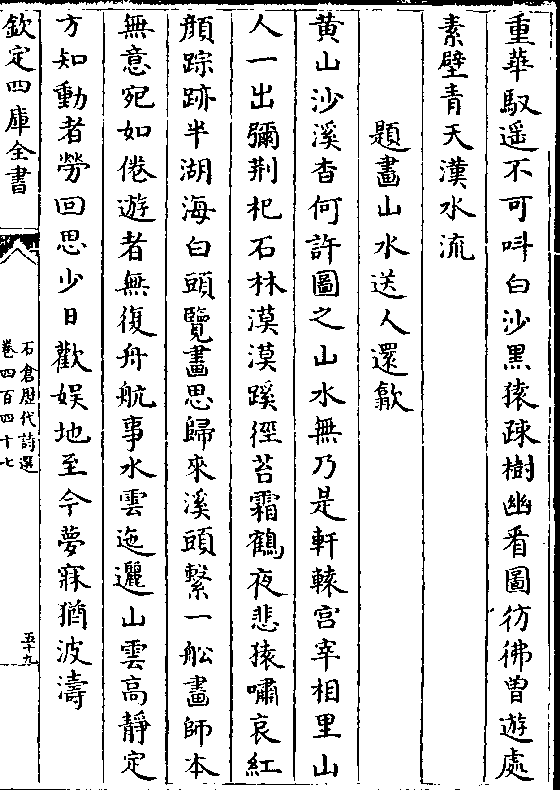 重華馭遥不可呌白沙黒猿疎樹幽看圖彷彿曽遊處
素壁青天漢水流
題畫山水送人還歙
黄山沙溪杳何許圖之山水無乃是軒轅宫宰相里山
人一出彌荆杞石林漠漠蹊徑苔霜鶴夜悲猿嘯哀紅
顔踪跡半湖海白頭覽畫思歸來溪頭繫一舩畫師本
無意宛如倦遊者無復舟航事水雲迤邐山雲高静定
方知動者勞回思少日歡娱地至今夢寐猶波濤
欽定四庫全書
石倉歴代詩選
卷四百四十七
五十九